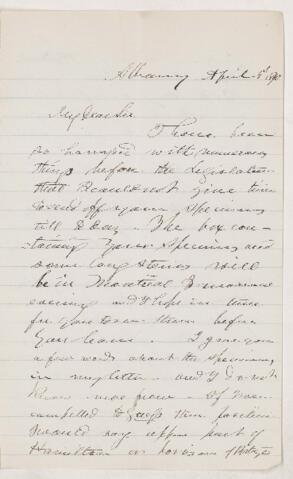 Albany April 5th 1890
My Dear Sir
I have been
so harrassed with numerous
things before the Legislature
that I could not give time
to send off your specimens
till to day. The box con-
taining your specimens and
some long stories will
be in Montreal tomorrow
evening and I hope in time
for you to see them before
you leave. I gave you
a few words about the specimens
in my letter and I do not
know more now. If I was
compelled to guess their position
I would say upper part of
Hamilton or horizon of